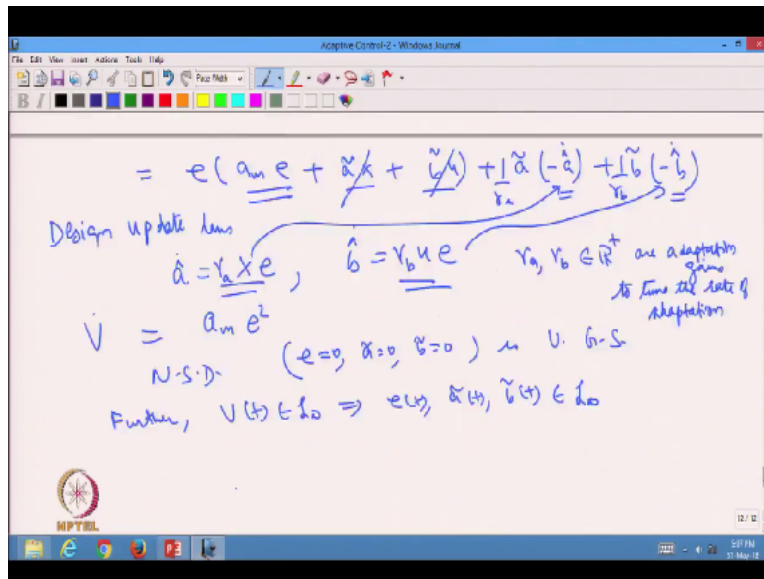 Adaptive Control-2 - Windows Journal
File Edit View Insert Actions Tools Help
Page Width
B I
= e(a_m e + ã x + b̃ u) + 1/γ_a ã (-â̇) + 1/γ_b b̃ (-b̂̇)
Design update laws
â̇ = γ_a x e, b̂̇ = γ_b u e γ_a, γ_b ∈ ℝ⁺ are adaptation
gains
to tune the rate of
adaptation
V̇ = a_m e²
N.S.D. (e=0, ã=0, b̃=0) is U. G.S.
Further, V(t) ∈ L∞ ⇒ e(t), ã(t), b̃(t) ∈ L∞
NPTEL
12 / 12
31-May-18